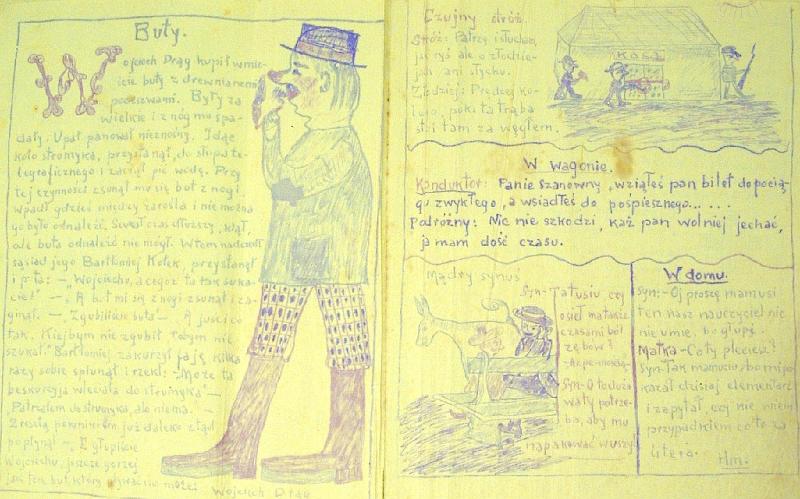 Buty.
Wojciech Drąg kupił w mie-
ście buty z drewnianemi
podeszwami. Były za
wielkie i z nóg mu spa-
dały. Upał panował nieznośny. Idąc
koło strumyka, przystanął do słupa te-
legraficznego i zaczął pić wodę. Przy
tej czynności zsunął mu się but z nogi
wpadł gdzieś między zarośla i nie można
go było odnaleźć. Szukał czas dłuższy, klął,
ale buta odnaleźć nie mógł. Wtem nadszedł
sąsiad jego Bartłomiej Kołek, przystanął
i pyta: — Wojciechu, a cegóż to tak suka-
cie? — A but mi się z nogi zsunął i za-
ginął. — Zgubiliście buta — A juści co
tak. Kiejbym nie zgubił tobym nie
szukał. Bartłomiej zakurzył fajkę kilka
razy sobie splunął i rzekł: — Może ta
beskurcyja wleciała do strumyka —
Patrzałem do strumyka, ale niema. —
Zresztą pewnie on już daleko stąd
popłynął — E głupiście
Wojciechu, jeszcze gorzej
jak ten but który
Wojciech Drąg
Czujny stróż.
Stróż: Patrzę i słucham,
ale o złodzie-
jach ani słychu.
Złodziej: Prędzej ko-
lego, póki ta trąba
stoi tam za węgłem.
KASA
W wagonie.
Konduktor: Panie szanowny, wziąłeś pan bilet do pocią-
gu zwykłego, a wsiadłeś do pospiesznego......
Podróżny: Nic nie szkodzi, każ pan wolniej jechać,
ja mam dość czasu.
Mądry synuś
Syn- Tatusiu, czy
osieł ma także
czasami ból
zębów?
Syn- O to dużo
waty potrze-
ba, aby mu
napakować w uszy!
W domu.
Syn: - Oj proszę mamusi
ten nasz nauczyciel nic
nie umie, bo głupi.
Matka - Co ty pleciesz?
Syn- Tak mamusiu, bo mi po-
kazał dzisiaj elementarz
i zapytał, czy nie wiem
przypadkiem co to za
litera.
Hm.